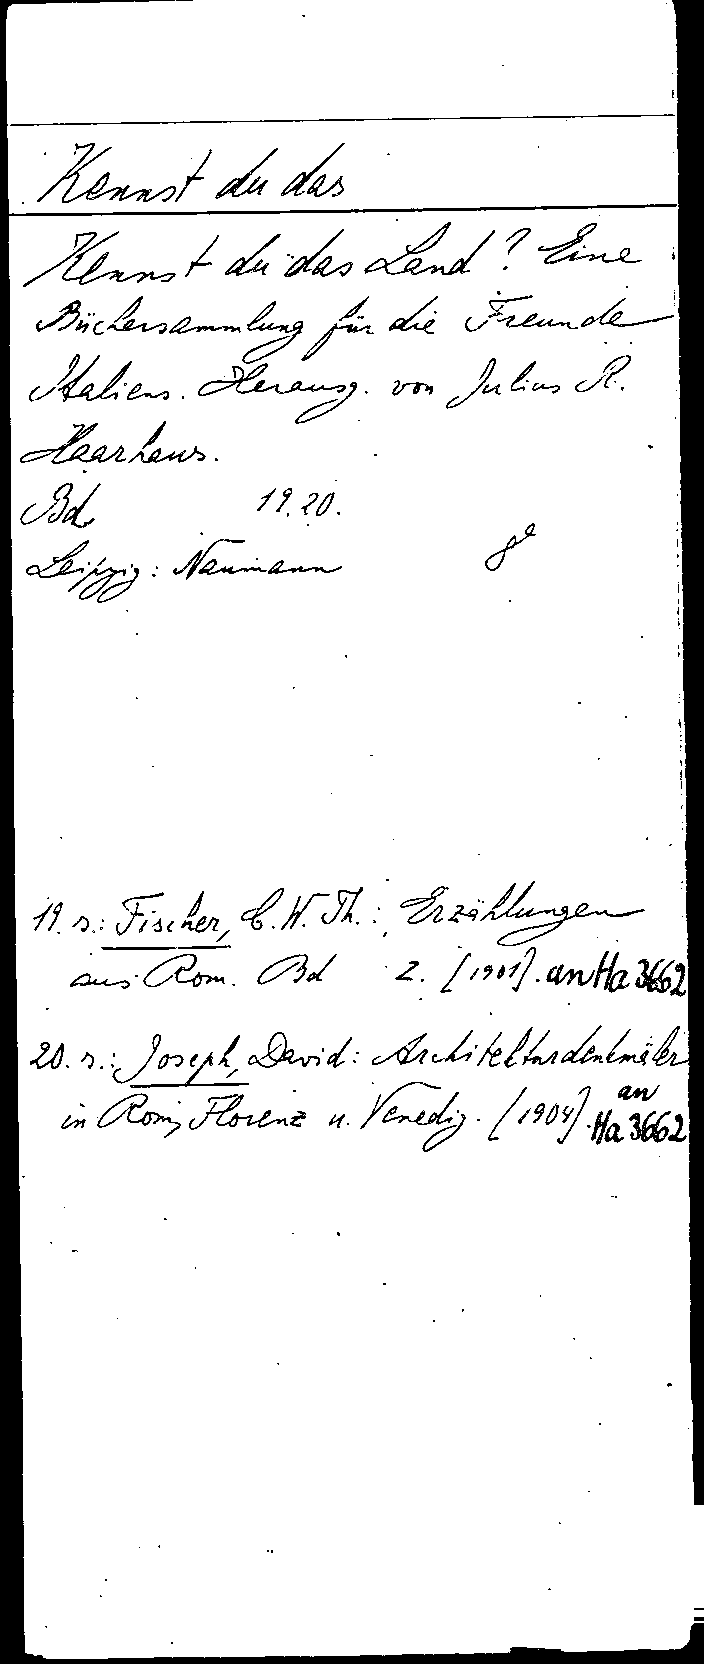 Kennst du das
Kennst du das Land? Eine
Büchersammlung für die Freunde
Italiens. Herausg. von Julius R.
Haarhaus.
Bd 19.20.
Leipzig: Naumann 8°
19. s.: Fischer, C. W. Th.: Erzählungen
aus Rom. Bd 2. [1901]. an Ha 3662
20. s.: Joseph, David: Architekturdenkmäler
in Rom, Florenz u. Venedig. [1904]. an
Ha 3662